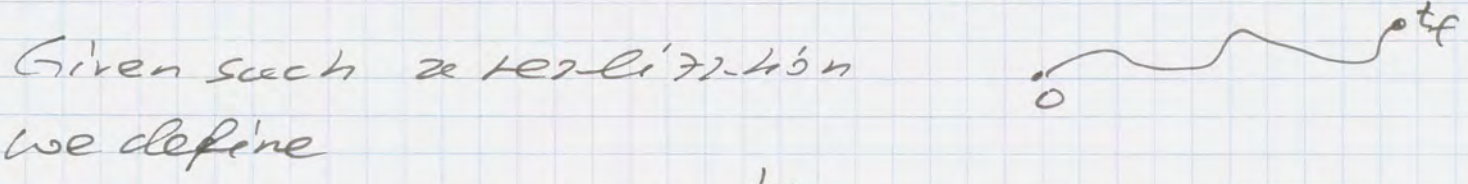 Given such a realization
t_f
0
we define